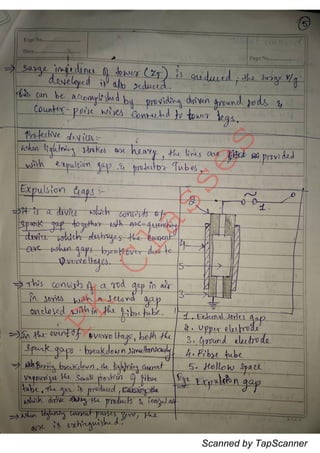 5
Page No.
Date
Page No.
⇒ Surge impedance of tower (ZT) is reduced, the surge V/g
developed is also reduced.
This can be accomplished by providing driven ground rods &
Counter-poise wires connected to tower legs.
Protective devices:-
When lightning strokes are heavy, the lines are provided
with expulsion gap & protector Tubes.
Expulsion Gaps:-
⇒ It is a device which consists of
spark gap together with arc-quenching
device which destroyes the current
arc when gaps breakover due to
Overvoltages.
⇒ This consists of a rod gap in air
in series with a second gap
enclosed within the fibre tube.
⇒ In the event of overvoltage, both the
spark gaps breakdown simultaneously
⇒ During breakdown, the lightning current
vapourises the small portion of fibre
tube, the gas is produced,
which drive away the products & ionized air
⇒ When lightning current passes zero, the
arc is extinguished.
2
1
4
5
3
1. External series gap
2. Upper electrode
3. Ground electrode
4. Fibre tube
5. Hollow Space
Fig: Expulsion gap
Classes
Scanned by TapScanner